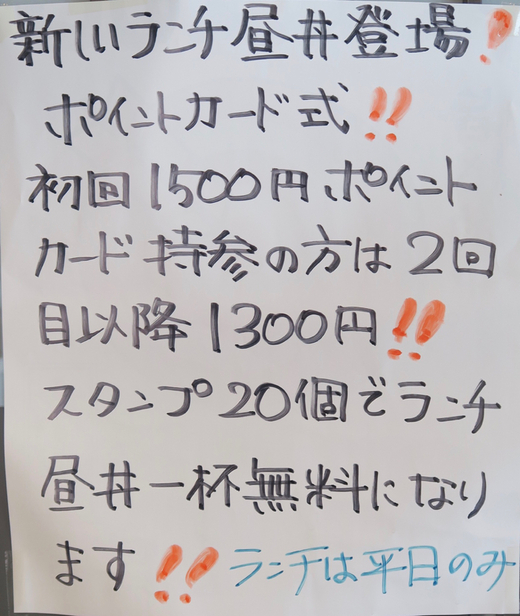 新しいランチ昼丼登場！
ポイントカード式！！
初回1500円ポイント
カード持参の方は2回
目以降1300円！！
スタンプ20個でランチ
昼丼一杯無料になり
ます！！ランチは平日のみ